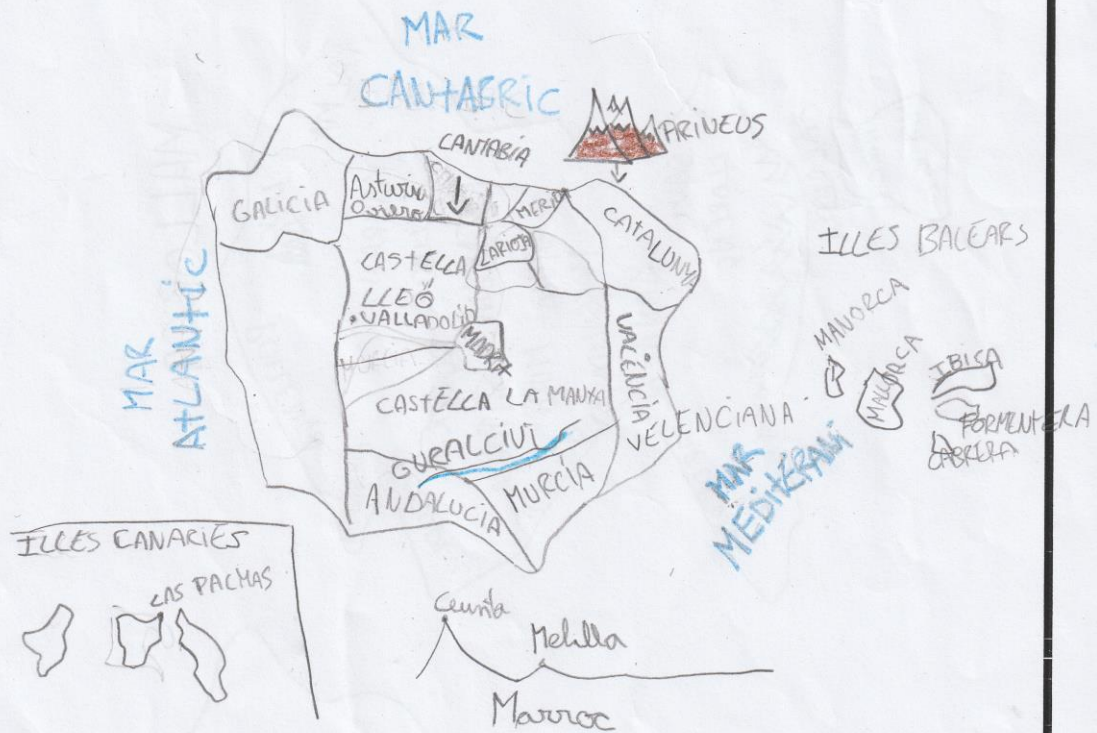 MAR
CANTABRIC
CANTABIA
PRINEUS
GALICIA
Asturia
Oviero
MERIA
CATALUNYA
LARIOJA
CASTELLA
LLEÓ
VALLADOLID
MADRIT
MURCIA
CASTELLA LA MANXA
VALÈNCIA
VELENCIANA
GURALCIVI
ANDALUCIA
MURCÍA
MAR
ATLANTIC
MAR
MEDITERANI
ILLES BALEARS
MANORCA
MALLORCA
IBISA
FORMENTERA
CABRERA
ILLES CANARIES
LAS PALMAS
Ceunta
Melilla
Marroc